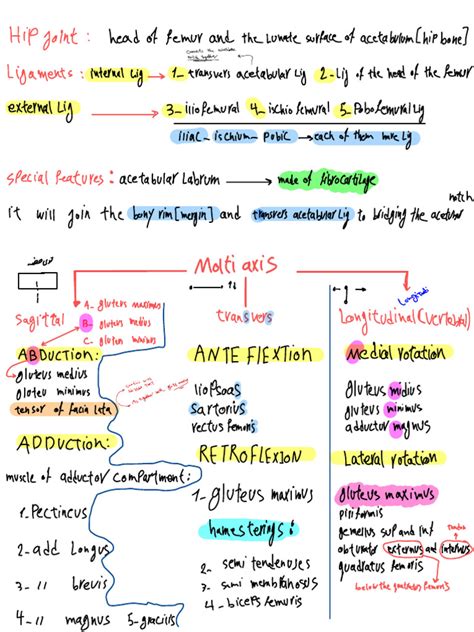 Hip joint : head of femur and the Lunate surface of acetabulum [hip bone]
Ligaments : internal Lig → 1_ transvers acetabular Lig 2_Lig of the head of the femur
external Lig → 3_ iliofemural 4_ ischio femural 5_ Pobofemural Lig
iliac_ ischium_ pobic → each of them one Lig
special features : acetabular Labrum → made of fibrocartilage
notch
it will join the bony rim [mergin] and transvers acetabular Lig to bridging the acetuar
Molti axis
sagittal
A_ gluteus maximus
B_ gluteus medius
C_ gluten minimus
transvers
Longitudinal (vertebral)
ABDuction:
gluteus medius
gloteu minimus
tensor of facia lata
ADDUCTION:
muscle of adductor compartment:
1_ Pectincus
2_ add Longus
3_ " brevis
4_ " magnus 5_ gracius
ANTE FLEXTION
liopsoas
Sartorius
rectus femoris
RETROFLEXION
1_ gluteus maximus
hamesterings :
2_ semi tendenuses
3_ simi membranosus
4_ biceps femuris
Medial rotation
gluteus midius
gluteus minimus
adductor magnus
Lateral rotation
gluteus maximus
piriformis
gemellus sup and inf
obturator externus and internus
quadratus femoris